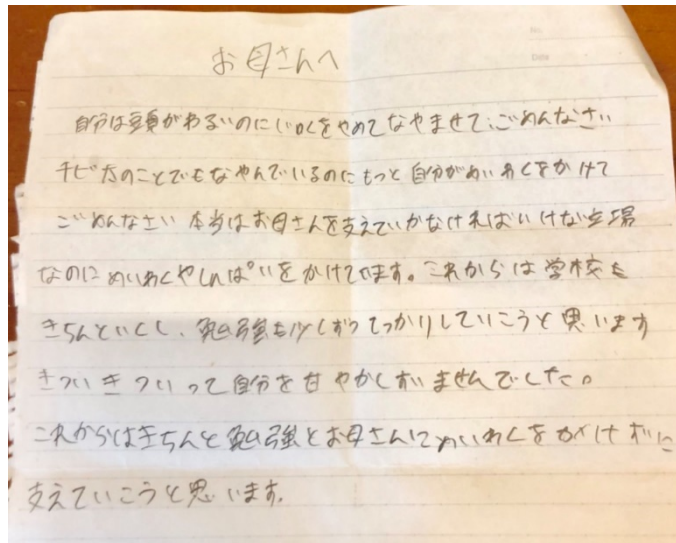 No.
Date
お母さんへ
自分は頭がわるいのにじゅくをやめてなやませて、ごめんなさい
チビたのことでもなやんでいるのにもっと自分がめいわくをかけて
ごめんなさい 本当はお母さんを支えていかなければいけない立場
なのにめいわくやしんぱいをかけてます。これからは学校も
きちんといくし、勉強も少しずつしっかりしていこうと思います
きついきついって自分を甘やかしすいませんでした。
これからはきちんと勉強とお母さんにめいわくをかけずに
支えていこうと思います。